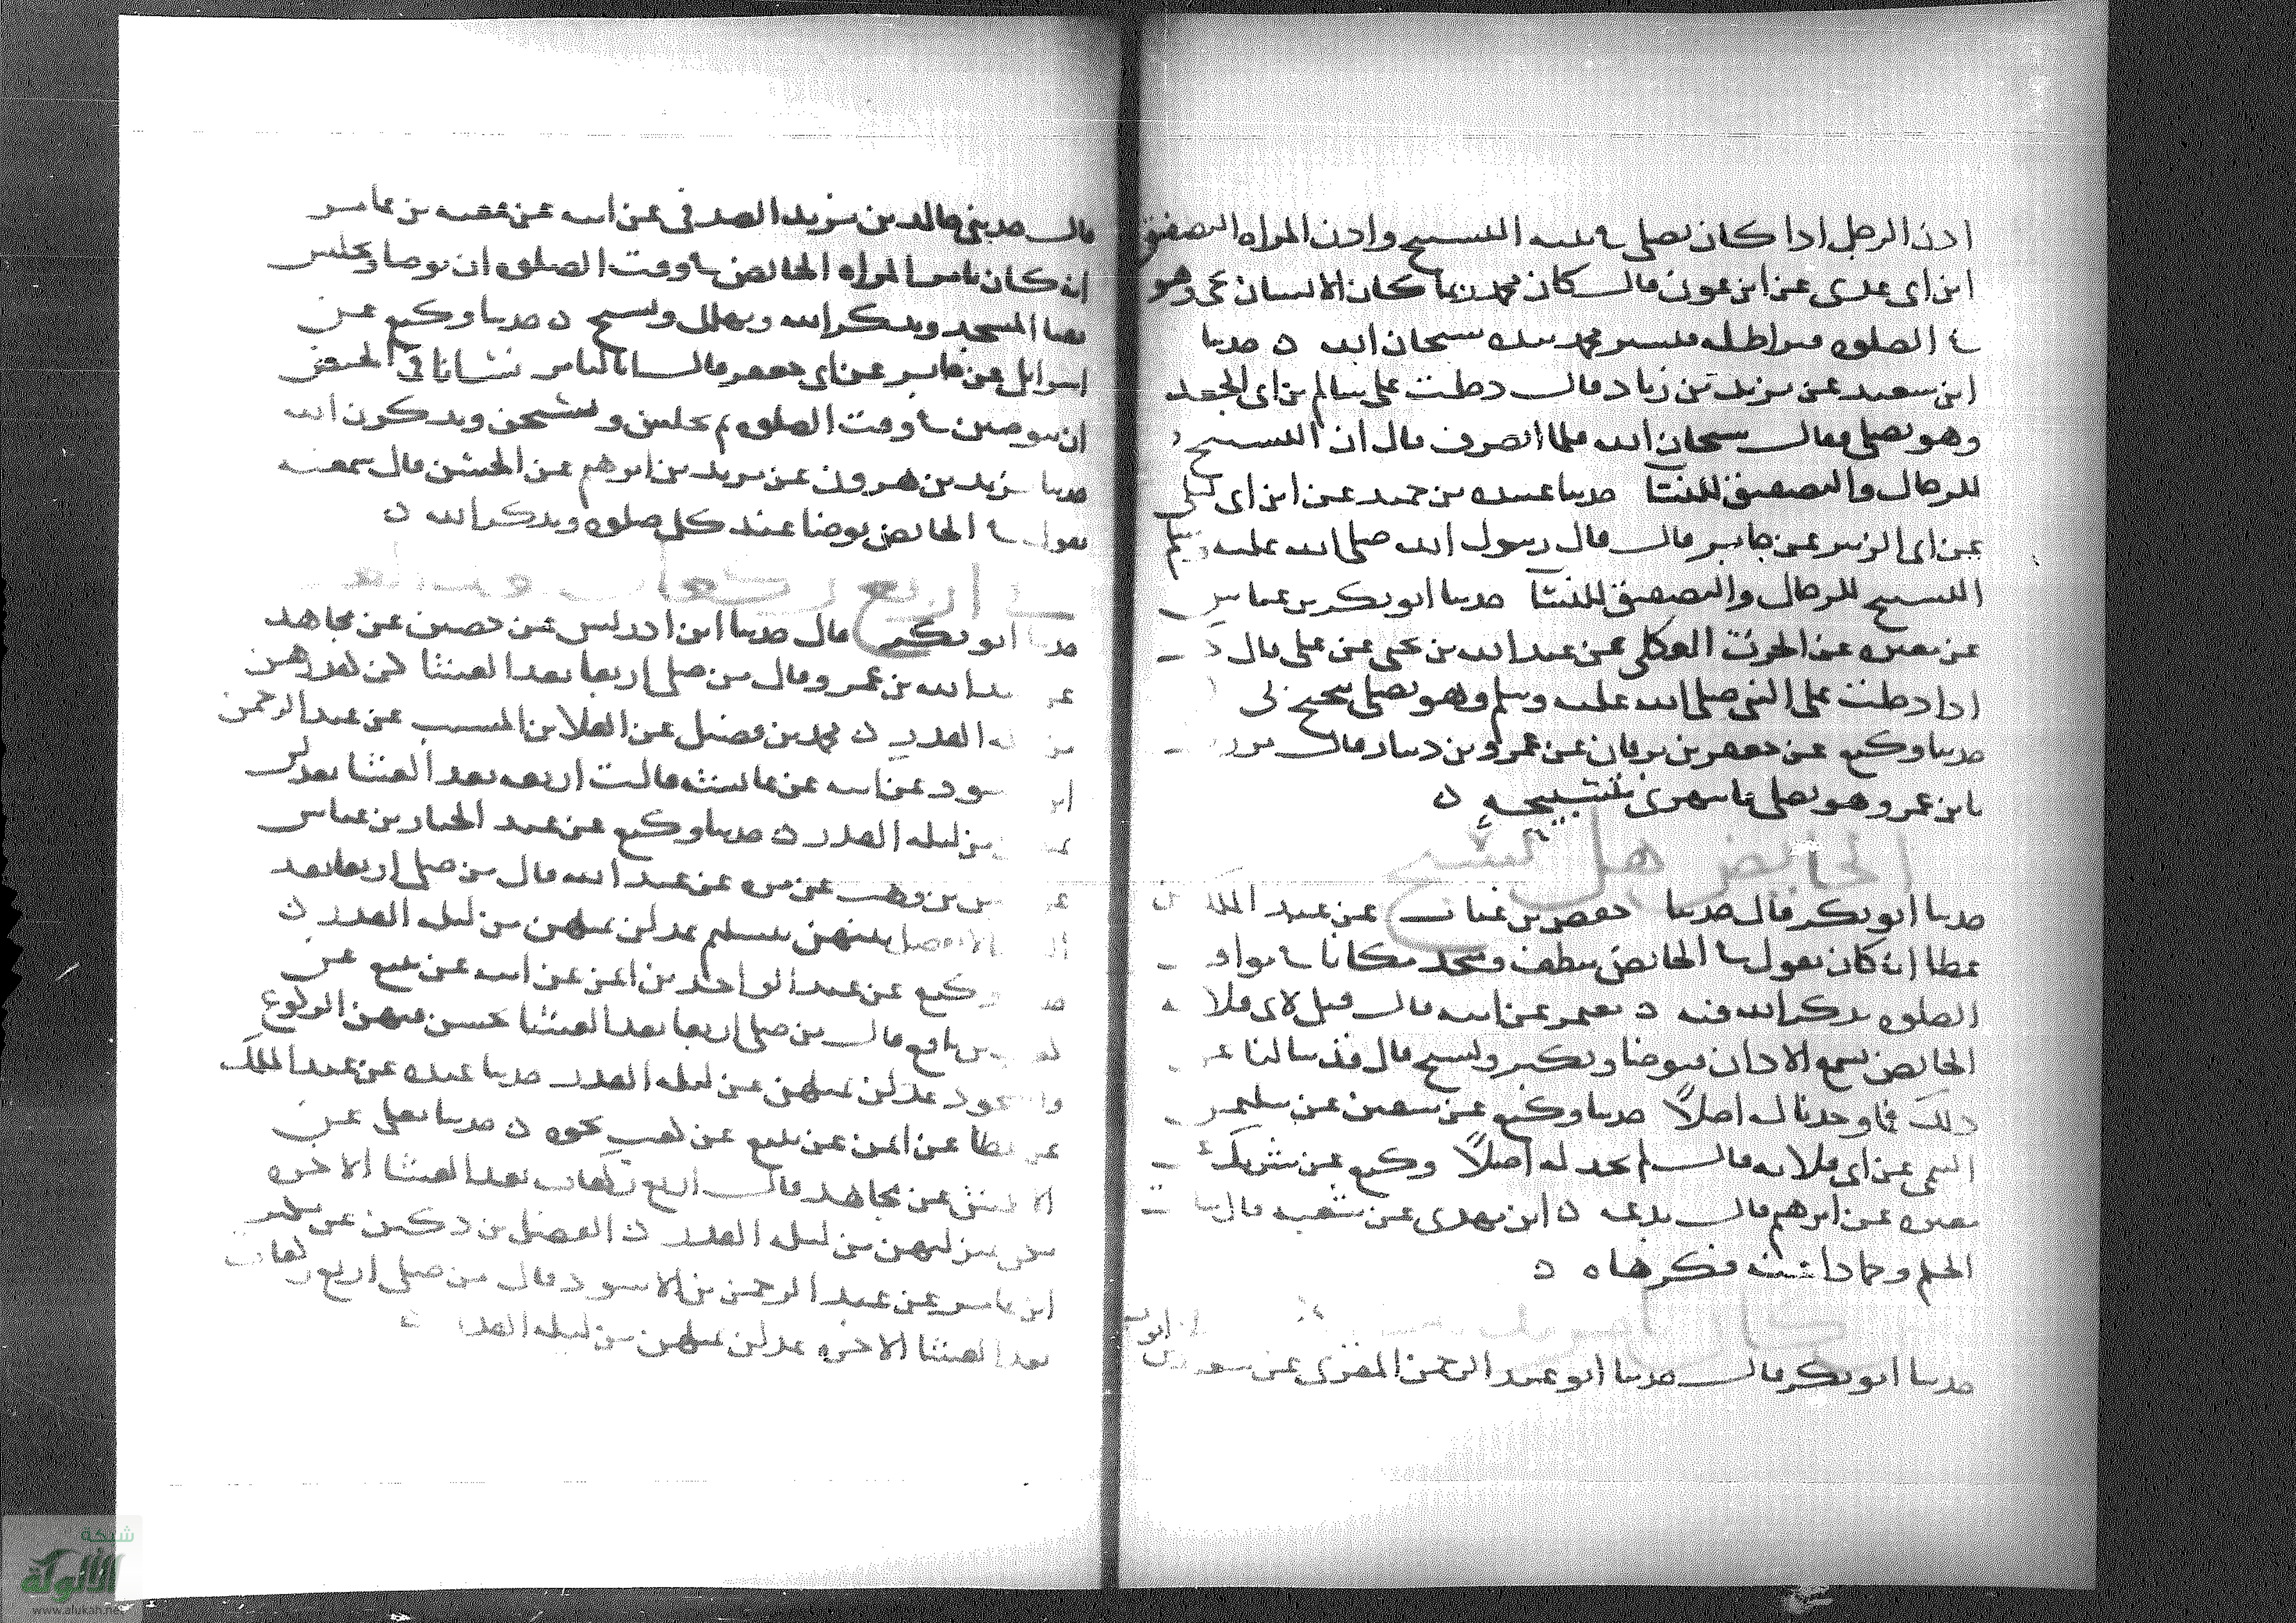 اذن الرجل اذا كان يصلي في بيته التسبيح واذن المراه التصفيق
ابن ابي عدي عن ابن عون قال كان محمد ربما كان الانسان يجي وهو
في الصلوه فيسير محمد بيده سبحان الله ه حدثنا
ابن سعيد عن يزيد بن زياد قال دخلت على سالم بن ابي الجعد
وهو يصلي فقال سبحان الله فلما انصرف قال ان التسبيح
للرجال والتصفيق للنسا حدثنا عبيده بن حميد عن ابن ابي ليلى
عن ابي الزبير عن جابر قال قال رسول الله صلى الله عليه وسلم
التسبيح للرجال والتصفيق للنسا حدثنا ابو بكر بن عياش
عن مغيره عن الحرث العكلي عن عبد الله بن يحيى عن علي قال
اذا دخلت على النبي صلى الله عليه وسلم وهو يصلي تنحنح لي
حدثنا وكيع عن جعفر بن برقان عن عمرو بن دينار قال مررت
بابن عمر وهو يصلي فانتهرني بتسبيحه ه
الحائض هل تسبح
حدثنا ابو بكر قال حدثنا حفص بن غياث عن عبد الملك عن
عطا انه كان يقول في الحائض تنظف وتتخذ مكانا في مواقيت
الصلوه تذكر الله فيه ه معتمر عن ابيه قال قيل لابي قلابه
الحائض تسمع الاذان فتوضا وتكبر وتسبح قال قد سالنا عن
ذلك فما وجدنا له اصلا حدثنا وكيع عن سفين عن سليمن
التيمي عن ابي قلابه قال لم نجد له اصلا وكيع عن شريك
مغيره عن ابرهيم قال بدعه ه ابن مهدي عن شعبه قال سالت
الحكم وحمادا عنه فكرهاه ه
حدثنا ابو بكر قال حدثنا ابو عبد الرحمن المقري عن سعيد بن ابي ايوب
قال حدثني خالد بن يزيد الصدفي عن ابيه عن عقبه بن عامر
انه كان يامر المراه الحائض في وقت الصلوه ان توضا وتجلس
بفنا المسجد وتذكر الله وتهلل وتسبح ه حدثنا وكيع عن
اسرايل عن جابر عن ابي جعفر قال انا لنامر نسانا في الحيض
ان يتوضين في وقت الصلوه ثم يجلسن ويسبحن ويذكرن الله
حدثنا يزيد بن هرون عن يزيد بن ابرهيم عن الحسن قال سمعته
يقول في الحائض توضا عند كل صلوه وتذكر الله ه
في اربع ركعات بعد صلوه العشا
حدثنا ابو بكر قال حدثنا ابن ادريس عن حصين عن مجاهد
عن عبد الله بن عمر و قال من صلى اربعا بعد العشا كن كقدرهن
من ليله القدر ه محمد بن فضيل عن العلا بن المسيب عن عبد الرحمن
ابن الاسود عن ابيه عن عائشه قالت اربعه بعد العشا يعدلن
بمثلهن من ليله القدر ه حدثنا وكيع عن عبد الجبار بن عباس
عن قيس بن وهب عن مره عن عبد الله قال من صلى اربعا بعد
العشا لا يفصل بينهن بتسليم عدلن بمثلهن من ليله القدر ه
حدثنا وكيع عن عبد الواحد بن ايمن عن ابيه عن تبيع عن
كعب بن ماتع قال من صلى اربعا بعد العشا يحسن فيهن الركوع
والسجود عدلن مثلهن من ليله القدر حدثنا عبده عن عبد الملك
عن عطا عن ايمن عن تبيع عن كعب نحوه ه حدثنا يعلى عن
الاعمش عن مجاهد قال اربع ركعات بعد العشا الاخره
يكن بمنزلتهن من ليله القدر ه الفضل بن دكين عن بكير
ابن عامر عن عبد الرحمن بن الاسود قال من صلى اربع ركعات
بعد العشا الاخره عدلن بمثلهن من ليله القدر ه
شبكة
الألوكة
www.alukah.net